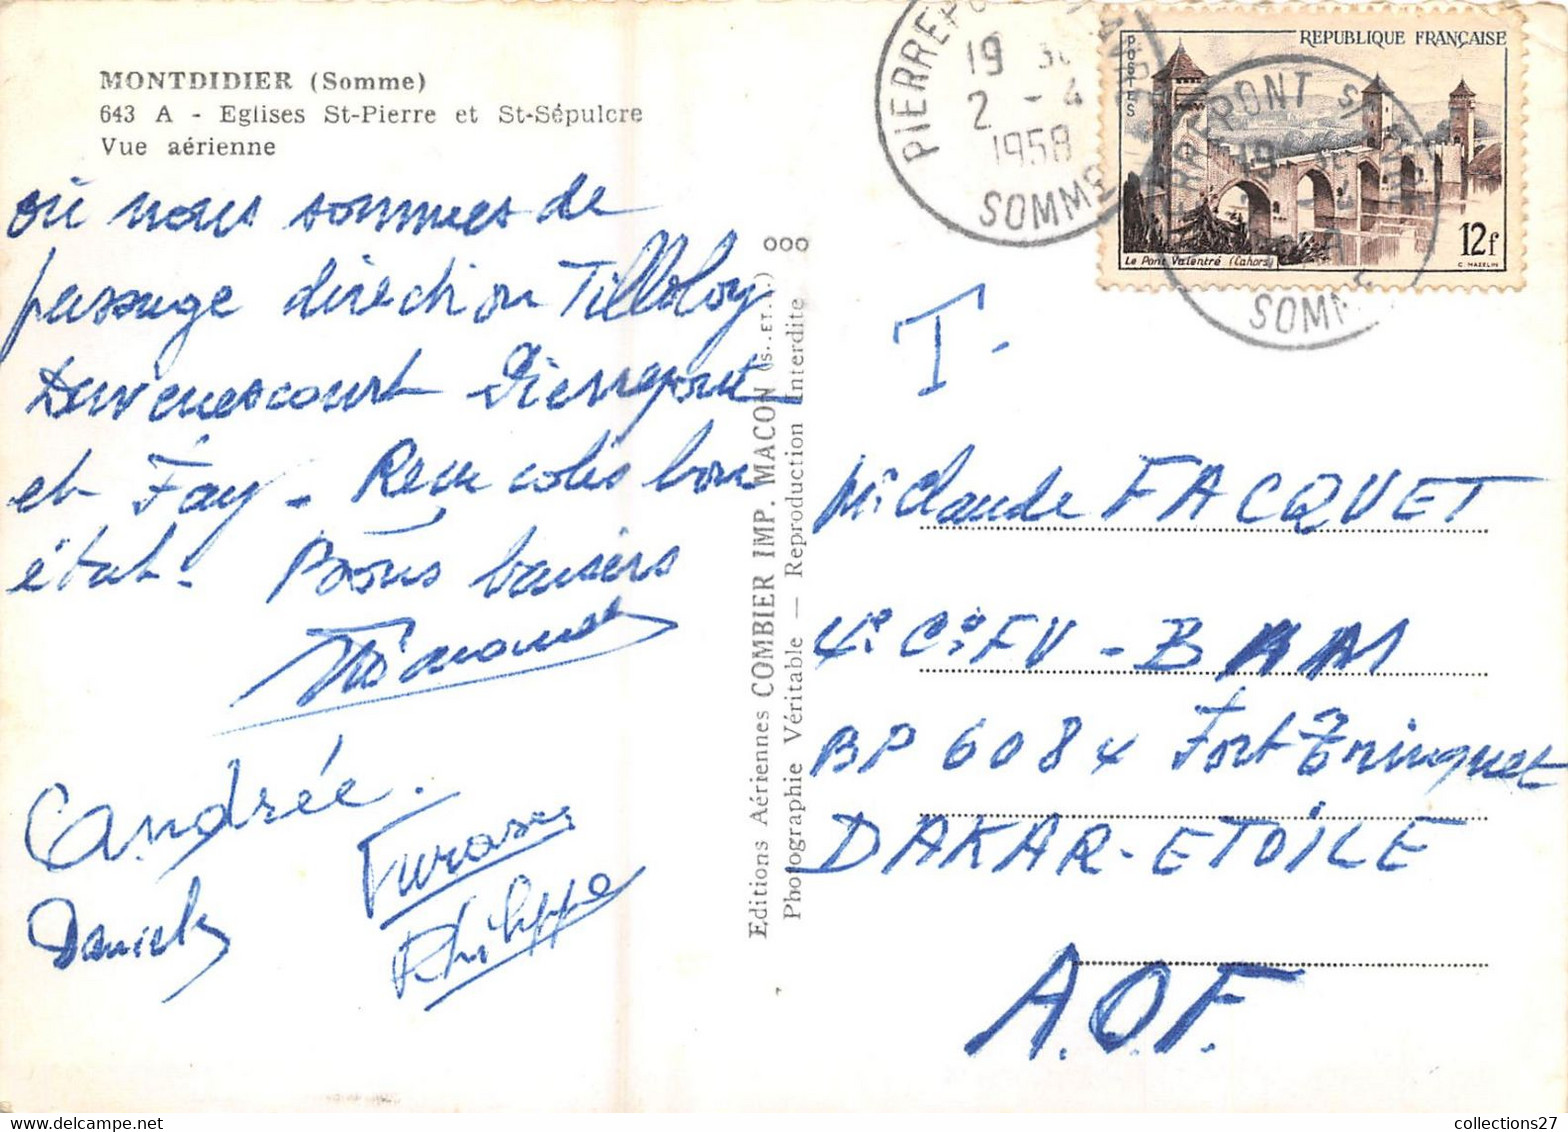 MONTDIDIER (Somme)
643 A - Eglises St-Pierre et St-Sépulcre
Vue aérienne
où nous sommes de
passage direction Tilloloy
Davenescourt Pierrepont
et Fay - Reçu colis bon
état. Bons baisers
Andrée.
Daniel
Philippe
Editions Aériennes COMBIER IMP. MACON (S.-ET-L.)
Photographie Véritable — Reproduction Interdite
19 30
2 - 4
1958
SOMME
POSTES
REPUBLIQUE FRANÇAISE
Le Pont Valentré (Cahors)
12f
C. HAZELIN
SOMME
T.
Mr Claude FACQUET
4e Cie FV - BAM
BP 6084 Fort Tringuet
DAKAR-ETOILE
A.O.F.
collections27